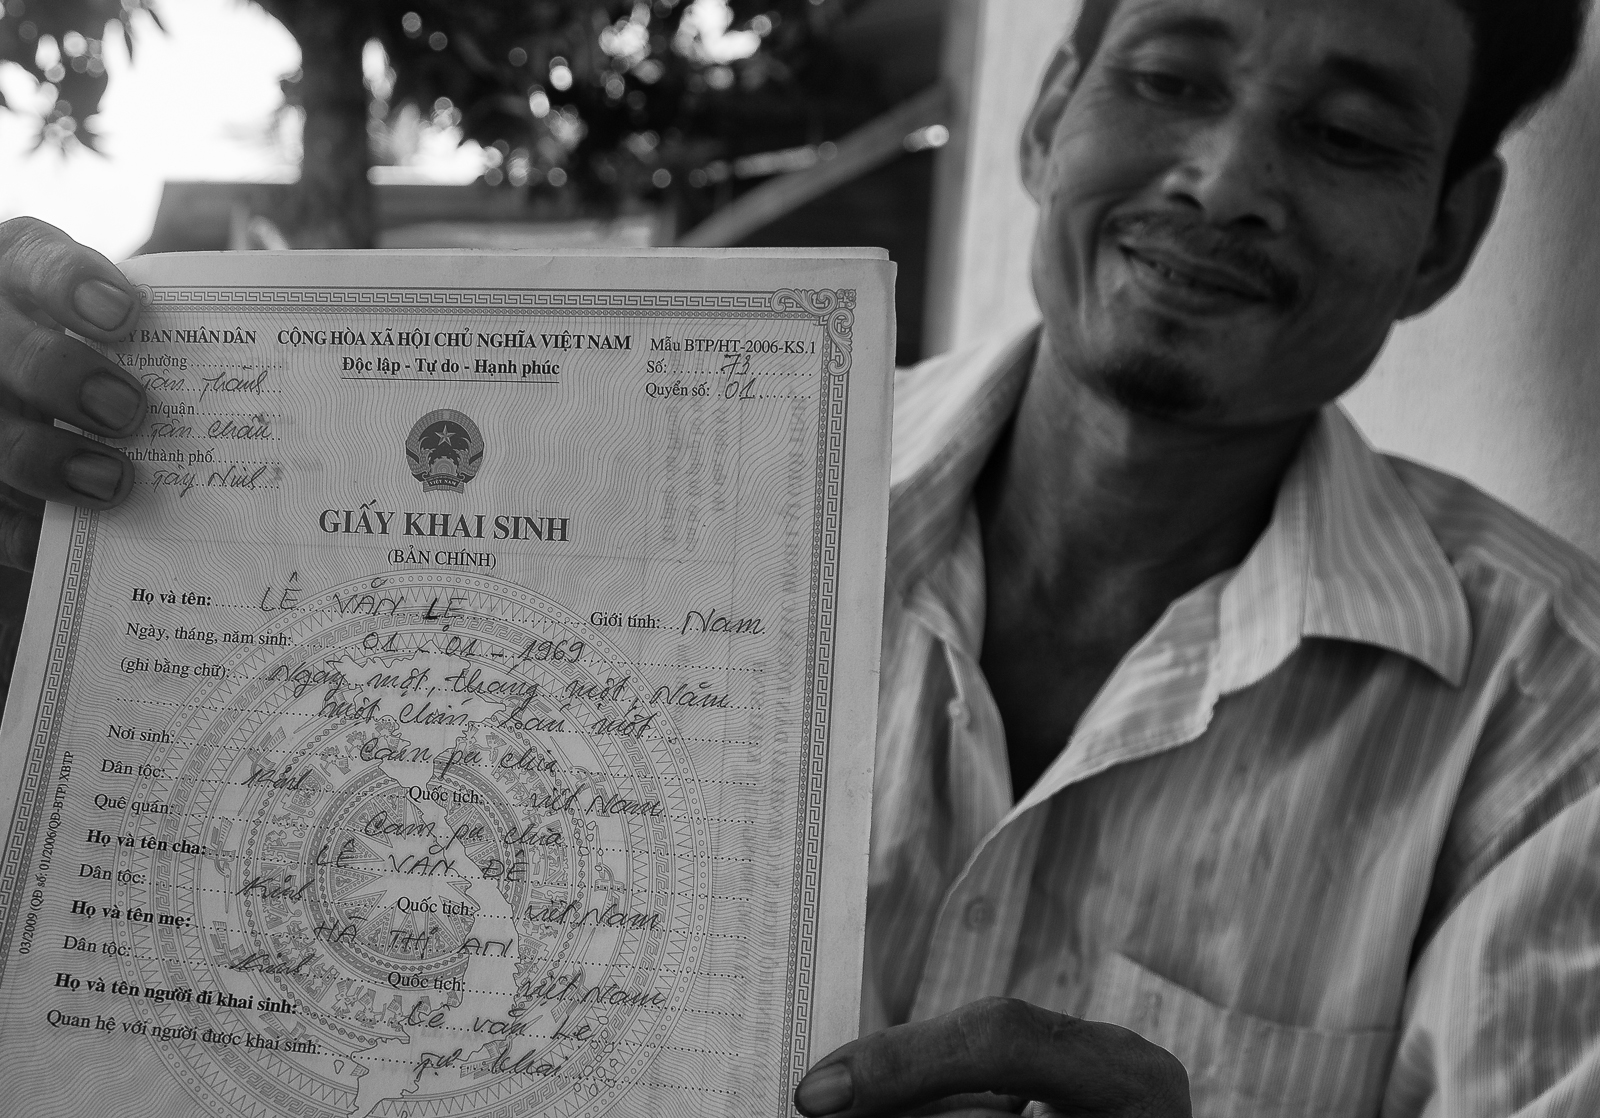 ỦY BAN NHÂN DÂN
CỘNG HÒA XÃ HỘI CHỦ NGHĨA VIỆT NAM
Mẫu BTP/HT-2006-KS.1
Độc lập - Tự do - Hạnh phúc
Số: 73
Quyển số: 01
Xã/phường
Tân Thành
ện/quận
Tân Châu
Tỉnh/thành phố
Tây Ninh
VIỆT NAM
GIẤY KHAI SINH
(BẢN CHÍNH)
Họ và tên: LÊ VĂN LẸ Giới tính: Nam
Ngày, tháng, năm sinh: 01 - 01 - 1969
(ghi bằng chữ): Ngày một, tháng một, Năm
một chín sáu một
Nơi sinh: Cam pu chia
Dân tộc: Kinh Quốc tịch: Việt Nam
Quê quán: Cam pu chia
Họ và tên cha: LÊ VĂN ĐÊ
Dân tộc: Kinh Quốc tịch: Việt Nam
Họ và tên mẹ: HÀ THỊ AN
Dân tộc: Kinh Quốc tịch: Việt Nam
Họ và tên người đi khai sinh: Lê Văn Lẹ
Quan hệ với người được khai sinh: Tự khai
03/2009 (QĐ số: 01/2006/QĐ-BTP) XBTP